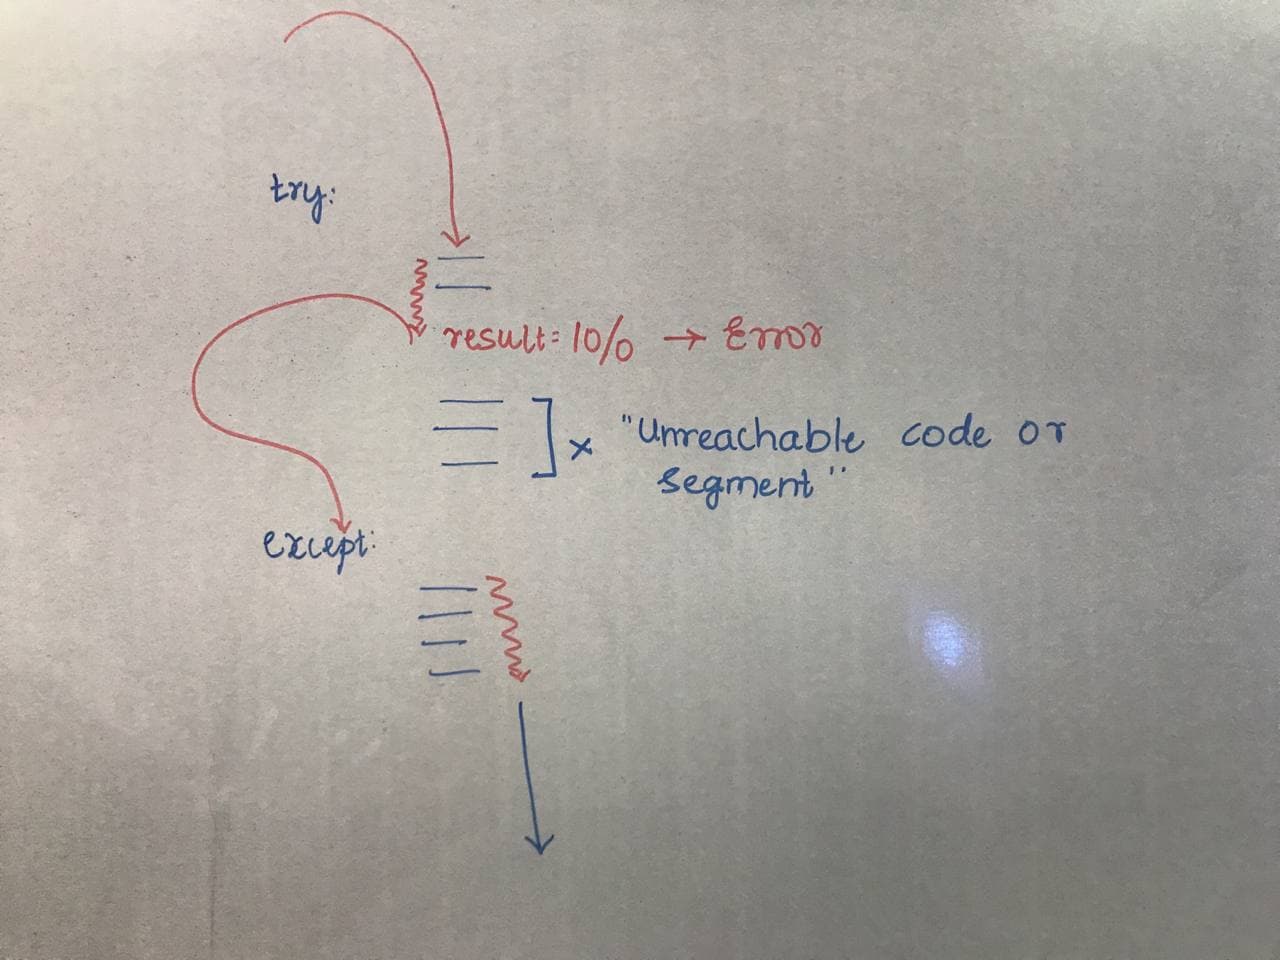 try:
result = 10/0 → Error
x "Unreachable code or
segment"
except: